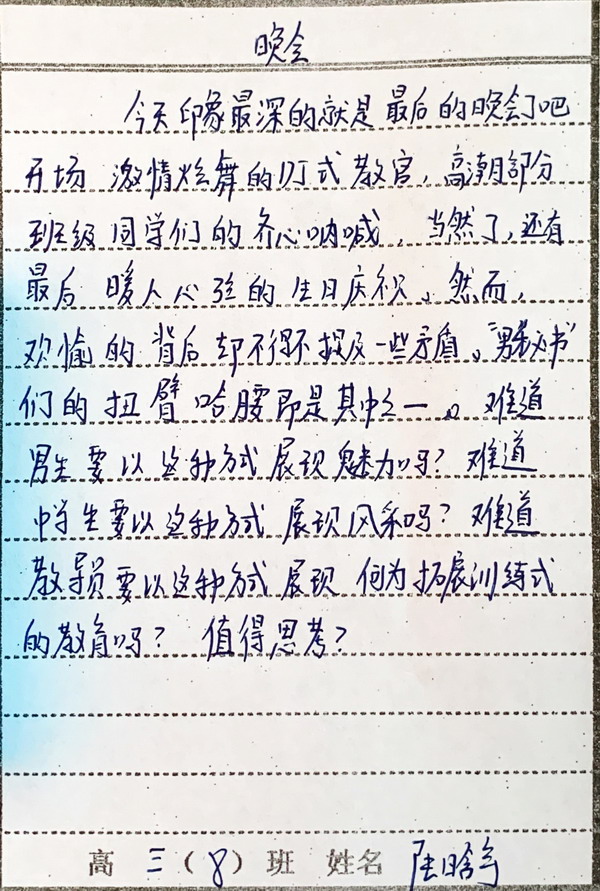 晚会
今天印象最深的就是最后的晚会了吧
开场激情炫舞的DJ式教官，高潮部分
班级同学们的齐心呐喊，当然了，还有
最后暖人心弦的生日庆祝。然而，
欢愉的背后却不得不提及一些矛盾。“男秘书”
们的扭臂哈腰即是其中之一。难道
男生要以这种方式展现魅力吗？难道
中学生要以这种方式展现风采吗？难道
教导员要以这种方式展现何为拓展训练式
的教育吗？值得思考？
高三（8）班 姓名 陆晗